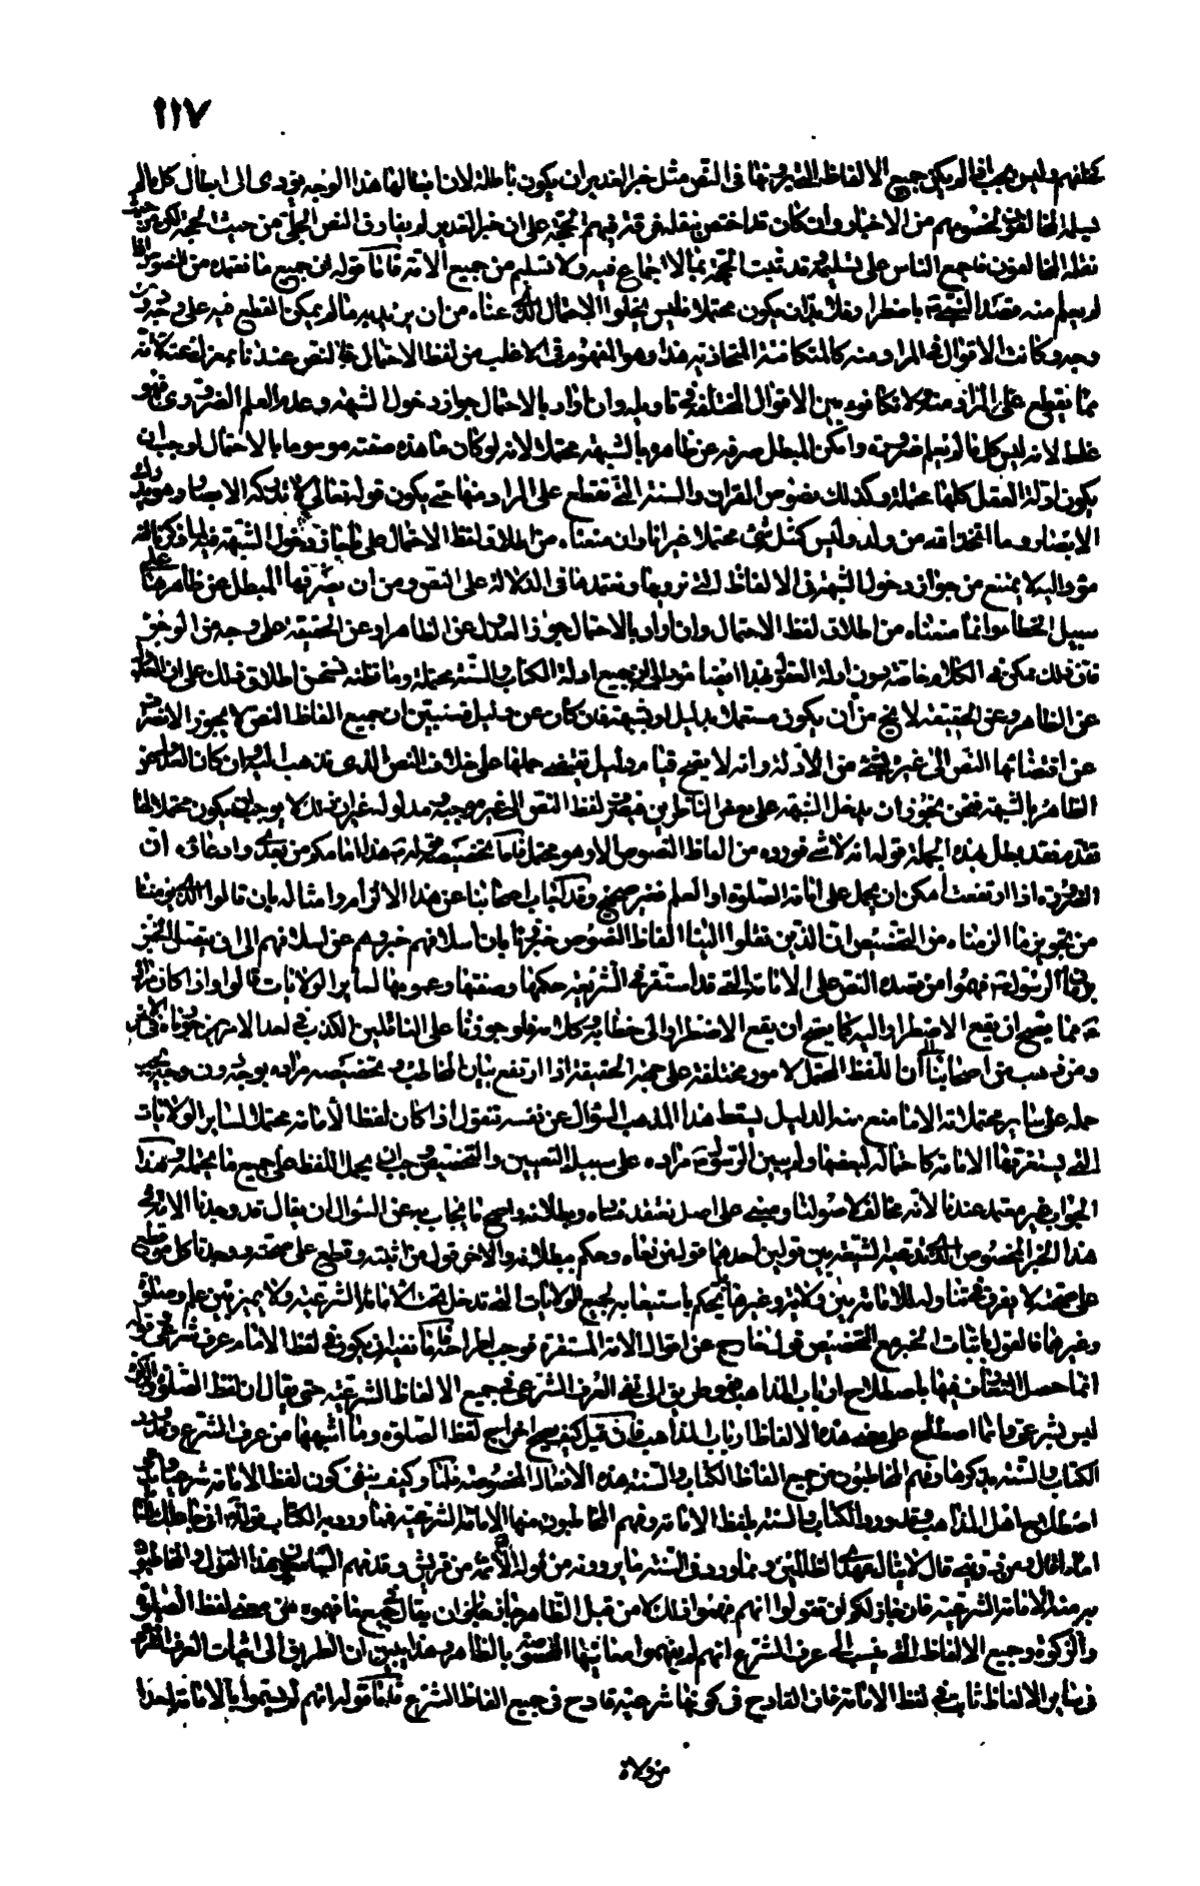 ١١٧
وليس يجب اذا لم يكن جميع الالفاظ التى رويتها فى النص مثل خبر الغدير ان يكون باطلة لان ابطالها هذا الوجه يؤدى الى ابطال كل ما لم
من الاخبار وان كان قد اختص بنقله فرقة فيهم الحجة على ان خبر الغدير لم يفارق النص الجلى من حيث الحجة
نقله المخالفون فاجمع الناس على تسليمه قد تثبت الحجة بما لا اجماع فيه ولا تسليم من جميع الامة فاما قوله ان جميع ما نقدمه من النصوص
لم يعلم منه باضطرار فلا بد ان يكون محتملا فليس يخلو الاحتمال الذى عناه من ان يريد به ما لم يمكن القطع فيه على
وكانت الاقوال فى المراد منه كالمتكافئة المتحاذية هذا وهو المفهوم فى الاغلب من لفظ الاحتمال فالنص عندنا بمعزل عنه لانه
مما نقطع على المراد منه ولا تكافؤ بين الاقوال المختلفة فى تاويله وان اراد بالاحتمال جواز دخول الشبهة وعدم العلم الضرورى فهو
غلط لانه ليس كل ما لم نعلم ضرورة وامكن المبطل صرفه عن ظاهره بالشبهة محتملا لانه لو كان ما هذه صفته موسوما بالاحتمال لوجب ان
يكون ادلة العقل كلها محتملة وكذلك نصوص القران والسنة التى نقطع على المراد منها حتى يكون قوله تعالى لا تدركه الابصار وهو يدرك
الابصار وما اتخذ الله من ولد وليس كمثله شىء محتملا غير انا وان منعناه من اطلاق لفظ الاحتمال على ما جاز دخول الشبهة فيه
لا يمتنع من جواز دخول الشبهة فى الالفاظ التى نرويها ونعتمدها فى الدلالة على النص ومن ان يصرفها المبطل عن ظاهرها على
سبيل الخطأ وانما منعناه من اطلاق لفظ الاحتمال وان اراد بالاحتمال جواز العدول عن الظاهر وعن الحقيقة على وجه من الوجوه
فان ذلك ممكن فى الكلام خاصة دون ادلة العقول فهذا ايضا مؤد الى ان جميع ادلة الكتاب والسنة محتملة وما نظنه يستحسن اطلاق ذلك على ان
عن الظاهر وعن الحقيقة لا يخ من ان يكون مستعملا بدليل او بشبهة فان كان عن دليل فسنبين ان جميع الفاظ النص لا يجوز الانصراف
عن اقتضائها النص الى غيره بشىء من الادلة وانه لا يصح قيام دليل يقتضى حملها على خلاف النص الذى نذهب اليه وان كان العدول عن
الظاهر بالشبهة فنحن نجوز ان يدخل الشبهة على بعض الناظرين فيصرف لفظ النص الى غير موجبه ومدلوله غير ان ذلك لا يوجب ان يكون محتملا لما
تقدم فقد بطل بهذه الجملة قوله انه لا شىء نورده من الفاظ النصوص الا وهو محتمل فاما
الضرورة اذا ارتفعت امكن ان يحمل على امامة الصلوة او العلم فغير صحيح وقد اجاب اصحابنا عن هذا الالزام وامثاله بان قالوا
من التخصيص ان الذين نقلوا الينا الفاظ النصوص خبرونا بان اسلافهم خبروهم عن اسلافهم الى ان يتصل الخبر
فهموا من قصده النص على الامامة التى قد استقر فى الشريعة حكمها وصفتها وعمومها لسائر الولايات قالوا واذا كان
مما يصح ان يقع الاضطرار اليه كما يصح ان يقع الاضطرار الى خطابه وكلامه فلو جوزنا على الناقلين الكذب فى احد الامرين
ومن ذهب من اصحابنا الى ان اللفظ المحتمل لامور مختلفة على جهة الحقيقة اذا ارتفع بيان المخاطب به وتخصيصه مراده بوجه دون وجه
حمله على سائر محتملاته الا ما منع منه الدليل يسقط هذا المذهب السؤال عن نفسه فنقول اذا كان لفظ الامامة محتملا لسائر الولايات
التى يستغرقها الامامة كاحتماله لبعضها ولم يبين الرسول مراده على سبيل التعيين والتخصيص وجب ان يحمل اللفظ على جميع ما يحتمله وهذا
الجواب غير معتمد عندنا لانه مخالف لاصولنا ومبنى على اصل نعتقد فساده وبطلانه واصح ما يجاب به عن السؤال ان يقال قد وجدنا الامة فى
هذا الخبر المخصوص الذى بين قولين احدهما قول من نفاه وحكم ببطلانه والاخر قول من اثبته وقطع على صحته ووجدنا كل من قطع
على صحته لا يفرق فى تناوله للامامة بين ولاية وغيرها يحكم باستيعابه لجميع الولايات التى تدخل تحت الامامة الشرعية ولا يميز بين علم وصلوة
وغيرهما فالقول باثبات الخبر مع التخصيص قول خارج عن اقوال الامة المستقرة فوجب اطراحه فاما ان يكون فى لفظ الامامة عرف شرعى
انما حصل التعارف فيها باصطلاح ارباب المذاهب فهو طريق الى نفى العرف الشرعى فى جميع الالفاظ الشرعية حتى يقال ان لفظ الصلوة
ليس بشرعى وانما اصطلح على هذه الالفاظ ارباب المذاهب فان قيل كيف يصح اخراج لفظ الصلوة وما اشبهها من عرف الشرع وقد ورد
الكتاب والسنة وفهم المخاطبون من جميع الفاظ الكتاب والسنة هذه الافعال المخصوصة قلنا وكيف ينفى كون لفظ الامامة شرعيا
اصطلاح اهل المذاهب وقد ورد الكتاب والسنة بلفظ الامامة وفهم المخاطبون منها الامامة الشرعية فما ورد به الكتاب قوله انى جاعلك للناس
اماما قال ومن ذريتى قال لا ينال عهدى الظالمين ومما ورد فى السنة ما يروونه من قوله الائمة من قريش وقد فهم السامعون بهذا القول والمخاطبون
به منه الامامة الشرعية فان جاز لكم ان تقولوا انهم فهموا ذلك لا من قبل الظاهر جاز ان يقال فى جميع ما فهموه من معنى لفظ الصلوة
والزكوة وجميع الالفاظ التى عرف الشرع انهم لم يفهموا معانيها المخصوصة بالظاهر وهذا يبين ان الطريق الى اثبات العرف
فى سائر الالفاظ ثابت فى لفظ الامامة وان القادح فى كونها شرعية قادح فى جميع الفاظ الشرع فاما قوله انهم لم يسموا بالامامة احدا
من ولاة